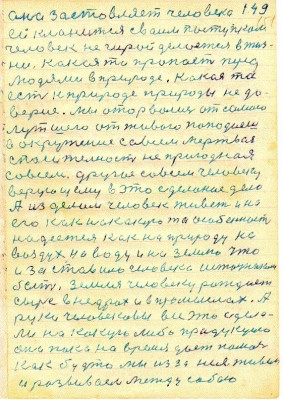 она заставляет человека 149
ей кланится своим поступком
человек не герой делается в жиз
ни. Какая то пропасть пред
людями в природе. Какая та
есть к природе природы не до
верия. Мы оторвались от самого
лутшего от живого попадаем
в окружение совсем мертвая
стоительность не пригодная
совсем. Другое совсем человеку
верующему в это сделаное дело
А из делом человек живет и на
его как на какую то особеность
надется как на природу на
воздух на воду и на землю что
и заставило человека
быть. Земля человеку рождает
сырье в недрах и в промыслах. А
руки человековы все это сдела
ли на какую либо продукцию
она пока на время дает помощ
как будто мы из за нея живем
и развиваем между собою